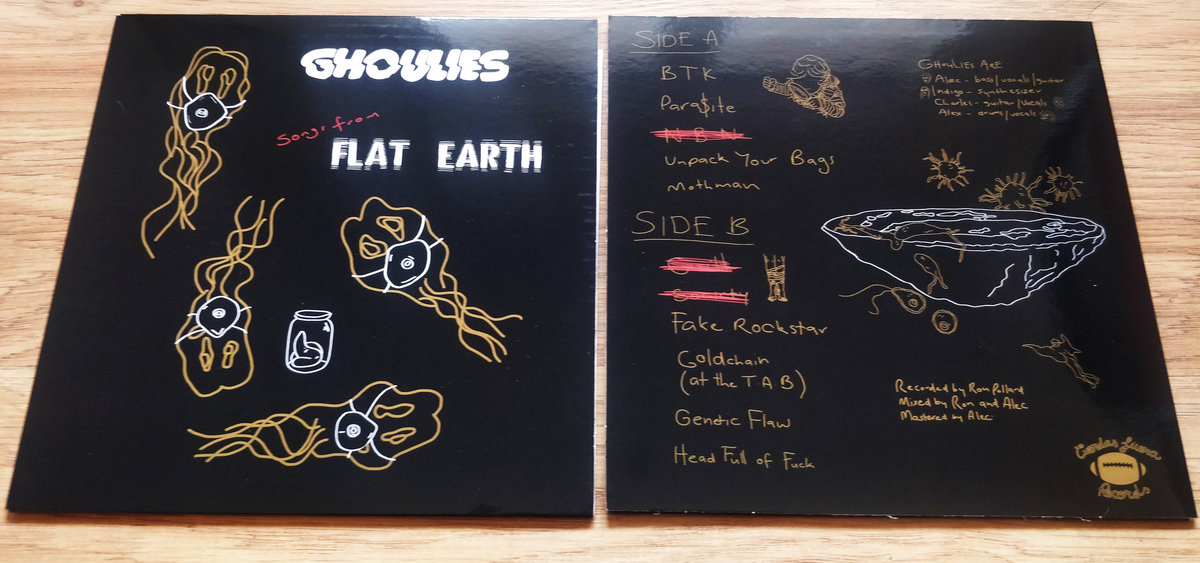 GHOULIES
Songs from
FLAT EARTH
SIDE A
BTK
Para$ite
N B N
Unpack Your Bags
Mothman
SIDE B
Fake Rockstar
Goldchain
(at the TAB)
Genetic Flaw
Head Full of Fuck
GHOULIES ARE
Alec - bass/vocals/guitar
Indigo - synthesizer
Charles - guitar/vocals
Alex - drums/vocals
Recorded by Ron Pollard
Mixed by Ron and Alec
Mastered by Alec
Records